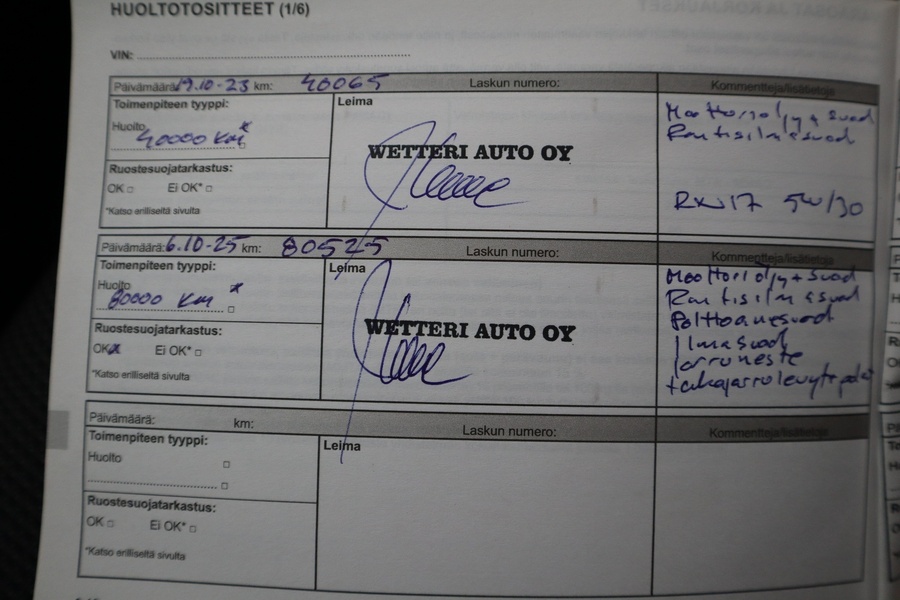 HUOLTOTOSITTEET (1/6)
VIN:
Päivämäärä: 19.10-23 km: 40065 Laskun numero: Kommentteja/lisätietoja
Toimenpiteen tyyppi:
Huolto
40000 km
Ruostesuojatarkastus:
OK Ei OK*
*Katso erilliseltä sivulta
Leima
WETTERI AUTO OY
Moottoriöljy + suod
Raitisilmasuod
RN17 5W/30
Päivämäärä: 6.10-25 km: 80525 Laskun numero: Kommentteja/lisätietoja
Toimenpiteen tyyppi:
Huolto
80000 km
Ruostesuojatarkastus:
OK x Ei OK*
*Katso erilliseltä sivulta
Leima
WETTERI AUTO OY
Moottoriöljy + suod
Raitisilmasuod
Polttoainesuod
Ilmasuod
Jarruneste
takajarrulevyt+palat
Päivämäärä: km: Laskun numero: Kommentteja/lisätietoja
Toimenpiteen tyyppi:
Huolto
Ruostesuojatarkastus:
OK Ei OK*
*Katso erilliseltä sivulta
Leima